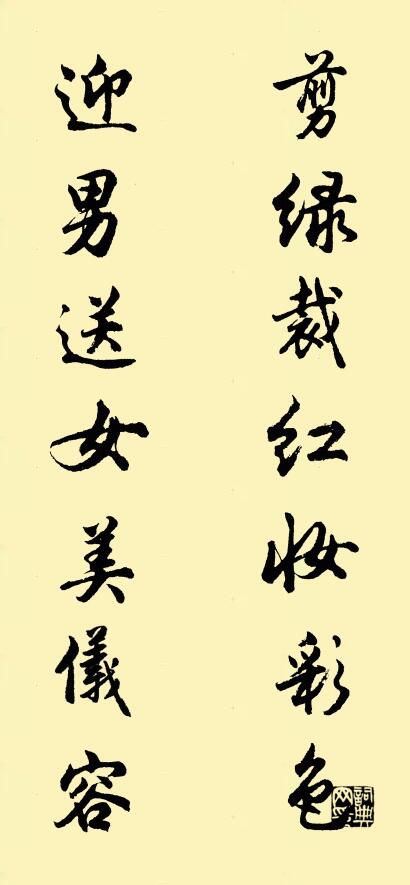 剪绿裁红妆彩色
迎男送女美儀容